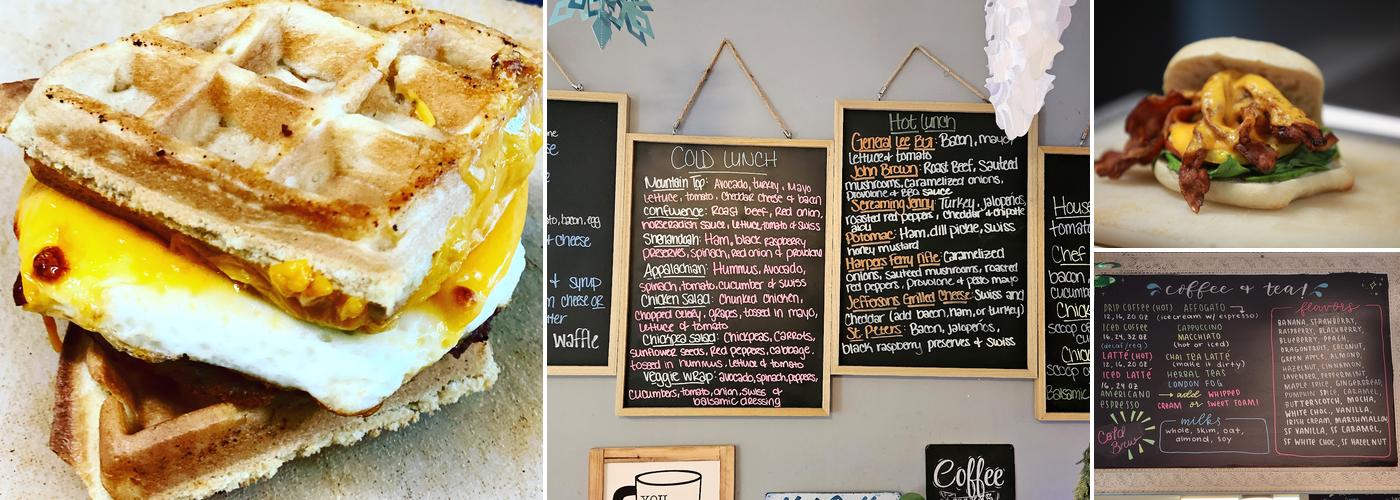 , bacon, egg
& cheese
& syrup
m cheese or
waffle
COLD LUNCH
Mountain Top: Avocado, turkey, Mayo
lettuce, tomato, cheddar cheese & bacon
Confluence: Roast beef, Red onion,
horseradish sauce, lettuce, tomato & swiss
Shenandoah: Ham, black raspberry
preserves, spinach, red onion & provolone
Appalachian: Hummus, Avocado,
spinach, tomato, cucumber & swiss
Chicken Salad: Chunked chicken,
chopped celery, grapes, tossed in mayo,
lettuce & tomato
Chickpea salad: Chickpeas, Carrots,
sunflower seeds, Red peppers, cabbage,
tossed in hummus, lettuce & tomato
Veggie Wrap: avocado, spinach, peppers,
cucumbers, tomato, onion, swiss &
balsamic dressing
Hot lunch
General Lee BLT: Bacon, mayo,
lettuce & tomato
John Brown: Roast Beef, Sauteed
mushrooms, caramelized onions,
provolone & BBQ sauce
Screaming Jenny: Turkey, jalapeños,
roasted red peppers, cheddar & chipotle
aiou
Potomac: Ham, dill pickle, swiss
honey mustard
Harpers Ferry Rifle: Caramelized
onions, sauteed mushrooms, roasted
red peppers, Provolone & pesto mayo
Jeffersons Grilled Cheese: Swiss and
Cheddar (add bacon, ham, or turkey)
St. Peters: Bacon, jalapeños,
black raspberry preserves & swiss
House
tomato
Chef
bacon,
cucumb
Chick
scoop o
Chic
scoop o
Balsamic
YOU
Coffee
coffee & tea!
DRIP COFFEE (HOT)
12, 16, 20 OZ
ICED COFFEE
16, 24, 32 OZ
(decaf/reg)
LATTE (HOT)
12, 16, 20 OZ
ICED LATTE
16, 24 OZ
AMERICANO
ESPRESSO
Cold
Brew
AFFOGATO
(icecream w/ espresso)
CAPPUCCINO
MACCHIATO
(hot or iced)
CHAI TEA LATTE
(make it dirty)
HERBAL TEAS
LONDON FOG
→ add WHIPPED
CREAM or SWEET FOAM!
milks
whole, skim, oat,
almond, soy
flavors
BANANA, STRAWBERRY,
RASPBERRY, BLACKBERRY,
BLUEBERRY, PEACH,
DRAGONFRUIT, COCONUT,
GREEN APPLE, ALMOND,
HAZELNUT, CINNAMON,
LAVENDER, PEPPERMINT,
MAPLE SPICE, GINGERBREAD,
PUMPKIN SPICE, CARAMEL,
BUTTERSCOTCH, MOCHA,
WHITE CHOC., VANILLA,
IRISH CREAM, MARSHMALLOW
SF VANILLA, SF CARAMEL,
SF WHITE CHOC., SF HAZELNUT